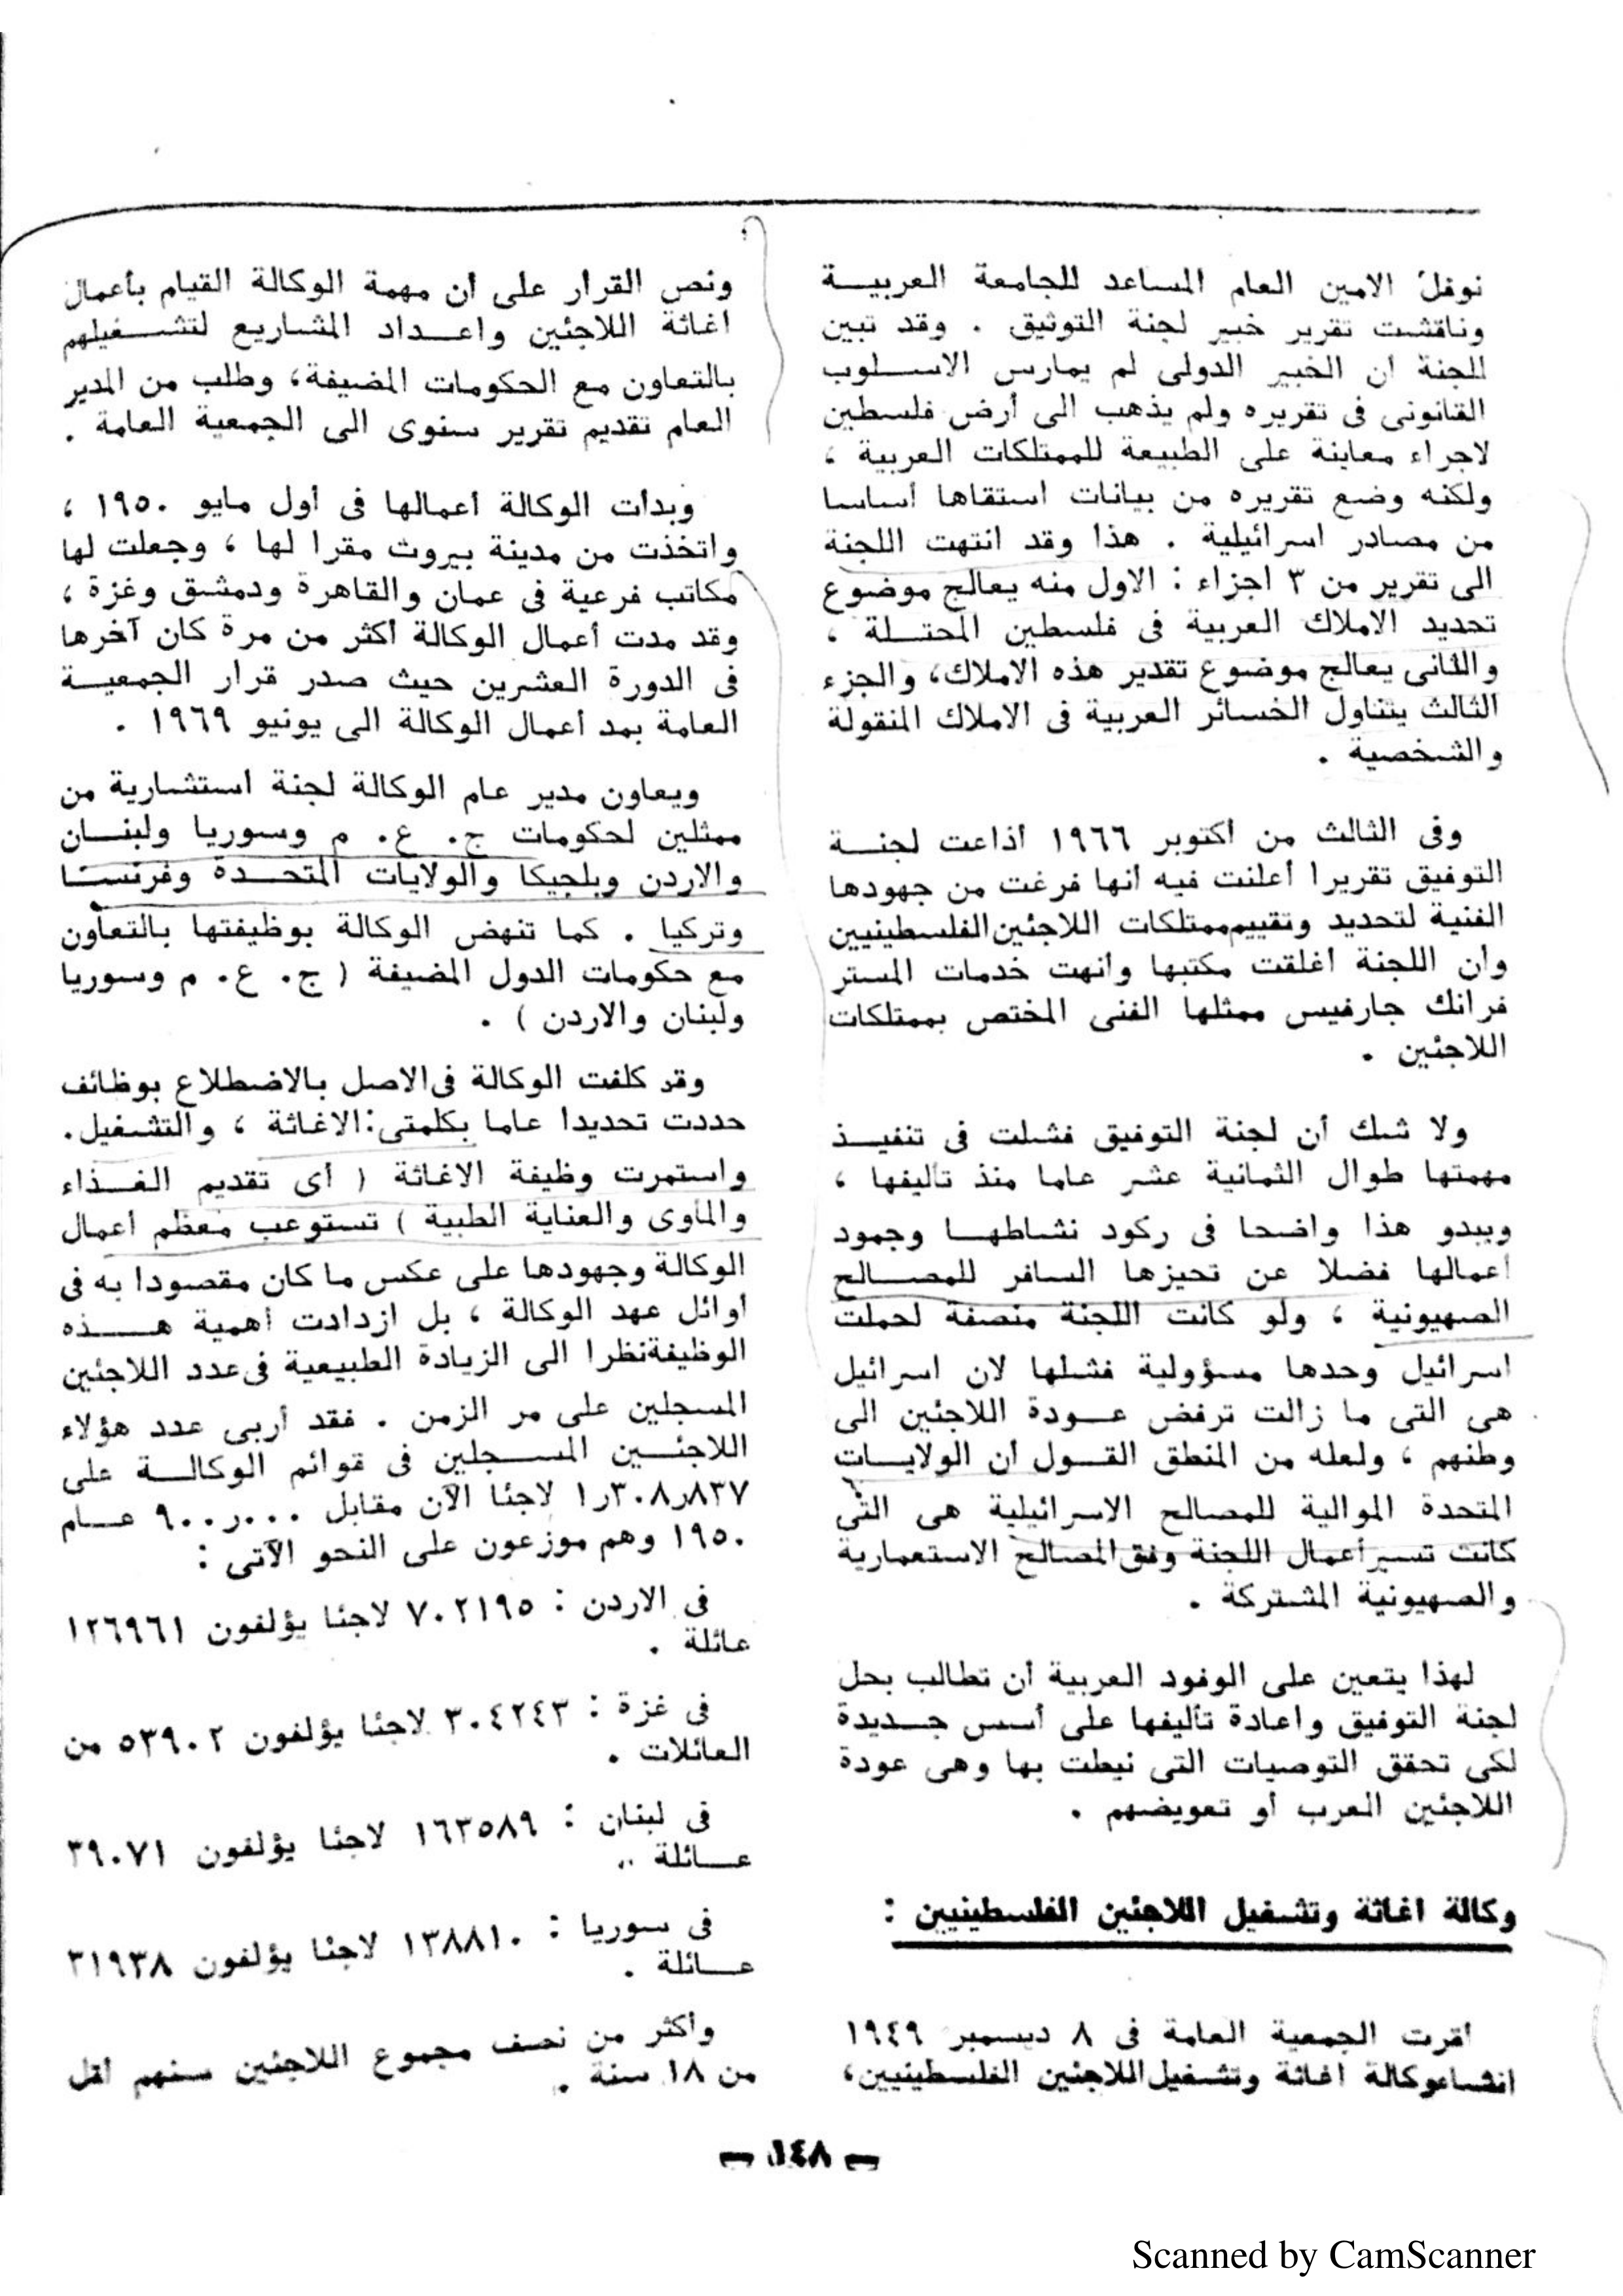 نوفل الامين العام المساعد للجامعة العربيـــة
وناقشت تقرير خبير لجنة التوثيق . وقد تبين
للجنة أن الخبير الدولى لم يمارس الاســـلوب
القانونى فى تقريره ولم يذهب الى أرض فلسطين
لاجراء معاينة على الطبيعة للممتلكات العربية ،
ولكنه وضع تقريره من بيانات استقاها أساسا
من مصادر اسرائيلية . هذا وقد انتهت اللجنة
الى تقرير من ٣ اجزاء : الاول منه يعالج موضوع
تحديد الاملاك العربية فى فلسطين المحتـــلة ،
والثانى يعالج موضوع تقدير هذه الاملاك، والجزء
الثالث يتناول الخسائر العربية فى الاملاك المنقولة
والشخصية .
وفى الثالث من أكتوبر ١٩٦٦ أذاعت لجنـــة
التوفيق تقريرا أعلنت فيه أنها فرغت من جهودها
الفنية لتحديد وتقييم ممتلكات اللاجئين الفلسطينيين
وان اللجنة أغلقت مكتبها وأنهت خدمات المستر
فرانك جارفيس ممثلها الفنى المختص بممتلكات
اللاجئين .
ولا شك أن لجنة التوفيق فشلت فى تنفيــذ
مهمتها طوال الثمانية عشر عاما منذ تأليفها ،
ويبدو هذا واضحا فى ركود نشاطهــا وجمود
أعمالها فضلا عن تحيزها السافر للمصــالح
الصهيونية ، ولو كانت اللجنة منصفة لحملت
اسرائيل وحدها مسؤولية فشلها لان اسرائيل
هى التى ما زالت ترفض عــودة اللاجئين الى
وطنهم ، ولعله من المنطق القــول أن الولايــات
المتحدة الموالية للمصالح الاسرائيلية هى التى
كانت تسير أعمال اللجنة وفق المصالح الاستعمارية
والصهيونية المشتركة .
لهذا يتعين على الوفود العربية أن تطالب بحل
لجنة التوفيق واعادة تأليفها على أسس جــديدة
لكى تحقق التوصيات التى نيطت بها وهى عودة
اللاجئين العرب أو تعويضهم .
وكالة اغاثة وتشغيل اللاجئين الفلسطينيين :
أقرت الجمعية العامة فى ٨ ديسمبر ١٩٤٩
انشاء وكالة اغاثة وتشغيل اللاجئين الفلسطينيين،
ونص القرار على أن مهمة الوكالة القيام بأعمال
اغاثة اللاجئين واعــداد المشاريع لتشــغيلهم
بالتعاون مع الحكومات المضيفة، وطلب من المدير
العام تقديم تقرير سنوى الى الجمعية العامة .
وبدأت الوكالة أعمالها فى أول مايو ١٩٥٠ ،
واتخذت من مدينة بيروت مقرا لها ، وجعلت لها
مكاتب فرعية فى عمان والقاهرة ودمشق وغزة ،
وقد مدت أعمال الوكالة أكثر من مرة كان آخرها
فى الدورة العشرين حيث صدر قرار الجمعيــة
العامة بمد أعمال الوكالة الى يونيو ١٩٦٩ .
ويعاون مدير عام الوكالة لجنة استشارية من
ممثلين لحكومات ج. ع. م وسوريا ولبنــان
والاردن وبلجيكا والولايات المتحــدة وفرنســا
وتركيا . كما تنهض الوكالة بوظيفتها بالتعاون
مع حكومات الدول المضيفة ( ج. ع. م وسوريا
ولبنان والاردن ) .
وقد كلفت الوكالة فى الاصل بالاضطلاع بوظائف
حددت تحديدا عاما بكلمتى: الاغاثة ، والتشغيل.
واستمرت وظيفة الاغاثة ( أى تقديم الغــذاء
والمأوى والعناية الطبية ) تستوعب معظم أعمال
الوكالة وجهودها على عكس ما كان مقصودا به فى
أوائل عهد الوكالة ، بل ازدادت أهمية هـــذه
الوظيفة نظرا الى الزيادة الطبيعية فى عدد اللاجئين
المسجلين على مر الزمن . فقد أربى عدد هؤلاء
اللاجئــين المســجلين فى قوائم الوكالــة على
١٫٣٠٨٫٨٣٧ لاجئا الآن مقابل ٩٠٠٫٠٠٠ عــام
١٩٥٠ وهم موزعون على النحو الآتى :
فى الاردن : ٧٠٢١٩٥ لاجئا يؤلفون ١٢٦٩٦١
عائلة .
فى غزة : ٣٠٤٢٤٣ لاجئا يؤلفون ٥٣٩٠٢ من
العائلات .
فى لبنان : ١٦٣٥٨٩ لاجئا يؤلفون ٣٩٠٧١
عــائلة ..
فى سوريا : ١٣٨٨١٠ لاجئا يؤلفون ٣١٩٣٨
عــائلة .
وأكثر من نصف مجموع اللاجئين سنهم أقل
من ١٨ سنة .
— ١٤٨ —
Scanned by CamScanner